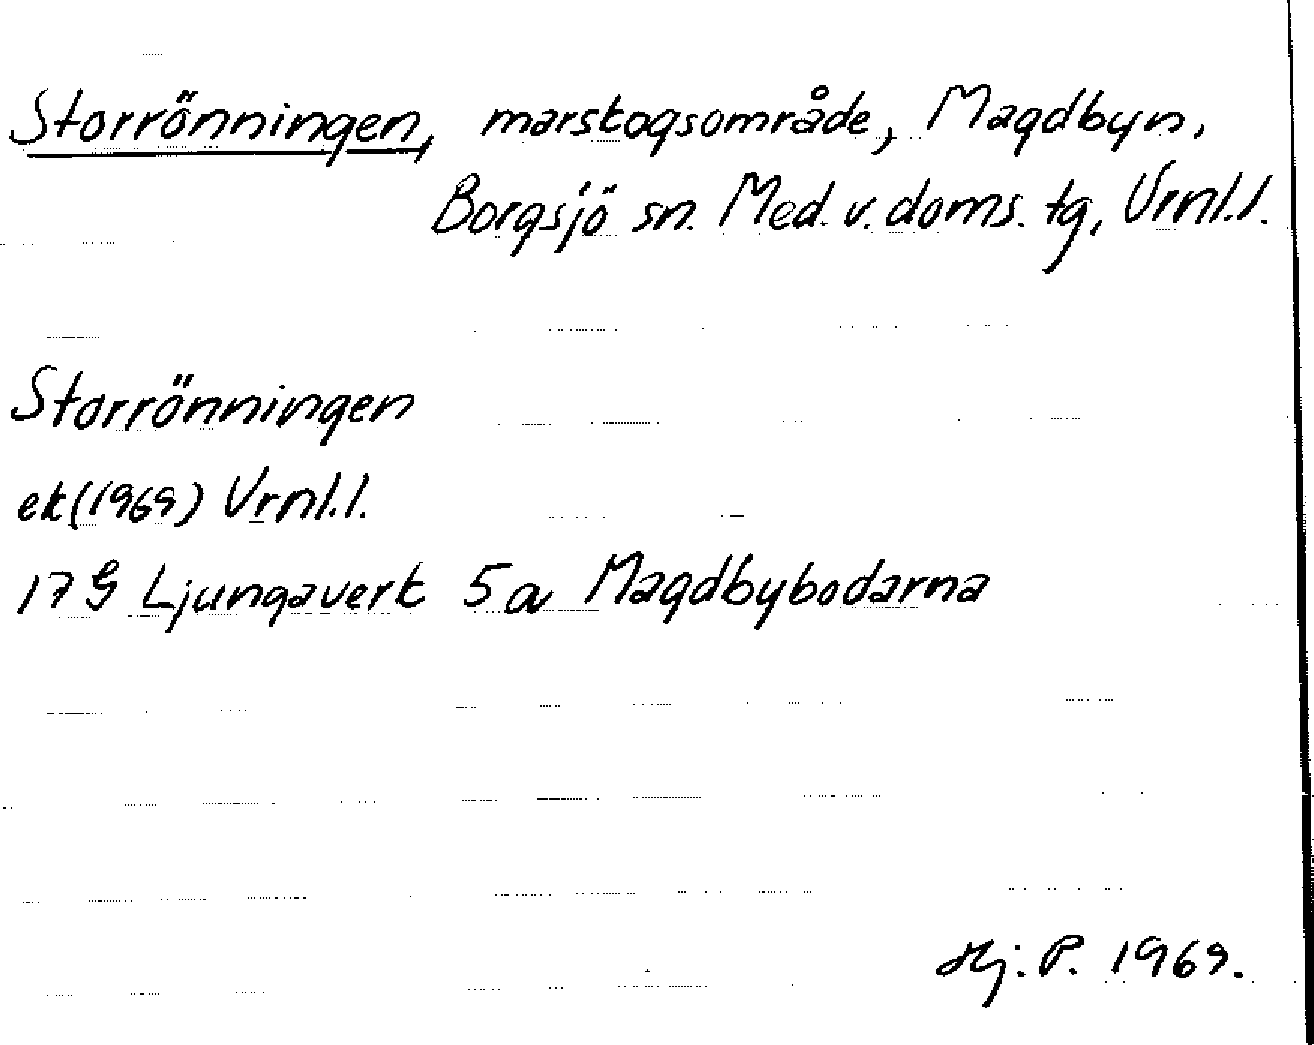 Storrönningen, marskogsområde, Magdbyn,
Borgsjö sn. Med. v. doms. tg, Vrnl.l.
Storrönningen
ek (1969) Vrnl.l.
17 G Ljungaverk 5 a Magdbybodarna
Hj. P. 1969.